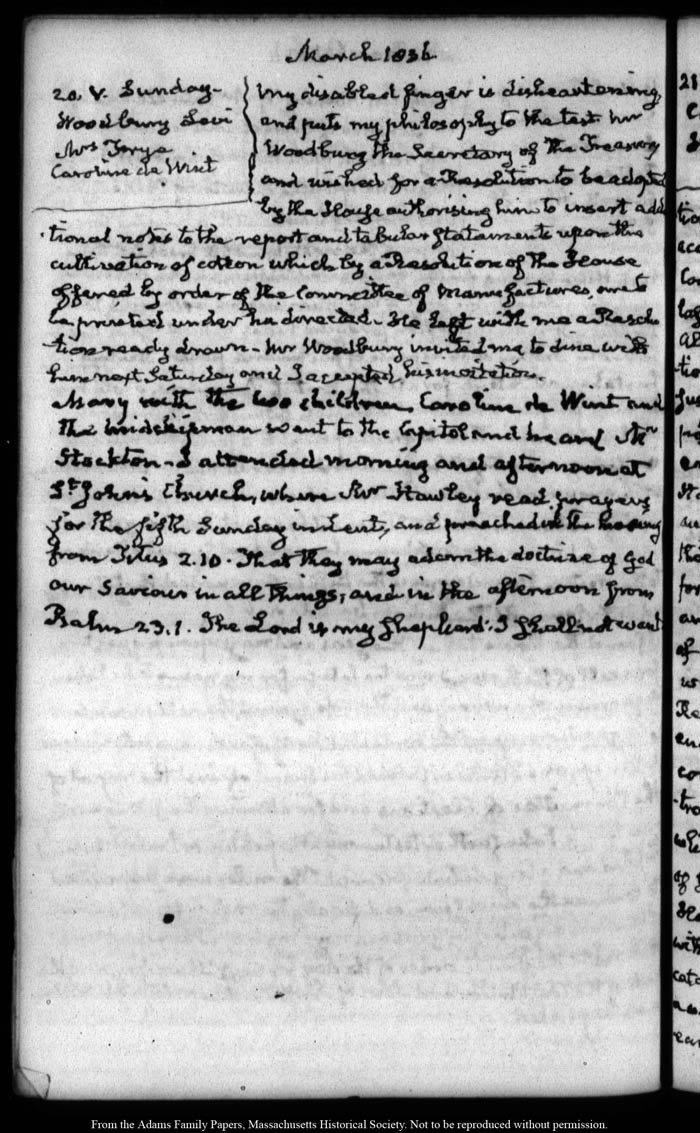 March 1836
20. V. Sunday-
Woodbury Levi
Mrs Forge
Caroline de Wint
My disabled finger is disheartening,
and puts my philosophy to the test. Mr
Woodbury the Secretary of the Treasury
and wished for a Resolution to be adopted
by the House authorising him to insert addi
tional notes to the report and tabular statements upon the
cultivation of cotton which by a Resolution of the House
offered by order of the Committee of Manufactures, are to
be printed under his direction. He left with me a Resolu
tion ready drawn - Mr Woodbury invited me to dine with
him next Saturday and I accepted his invitation.
Mary with the two children, Caroline de Wint and
the Midshipman went to the Capitol and heard Mr
Stockton - I attended morning and afternoon at
St. John's Church, where Mr Hawley read prayers
for the fifth Sunday in Lent, and preached in the morning
from Titus 2.10. That they may adorn the doctrine of God
our Saviour in all things; and in the afternoon from
Psalm 23.1. The Lord is my Shepherd: I shall not want
From the Adams Family Papers, Massachusetts Historical Society. Not to be reproduced without permission.